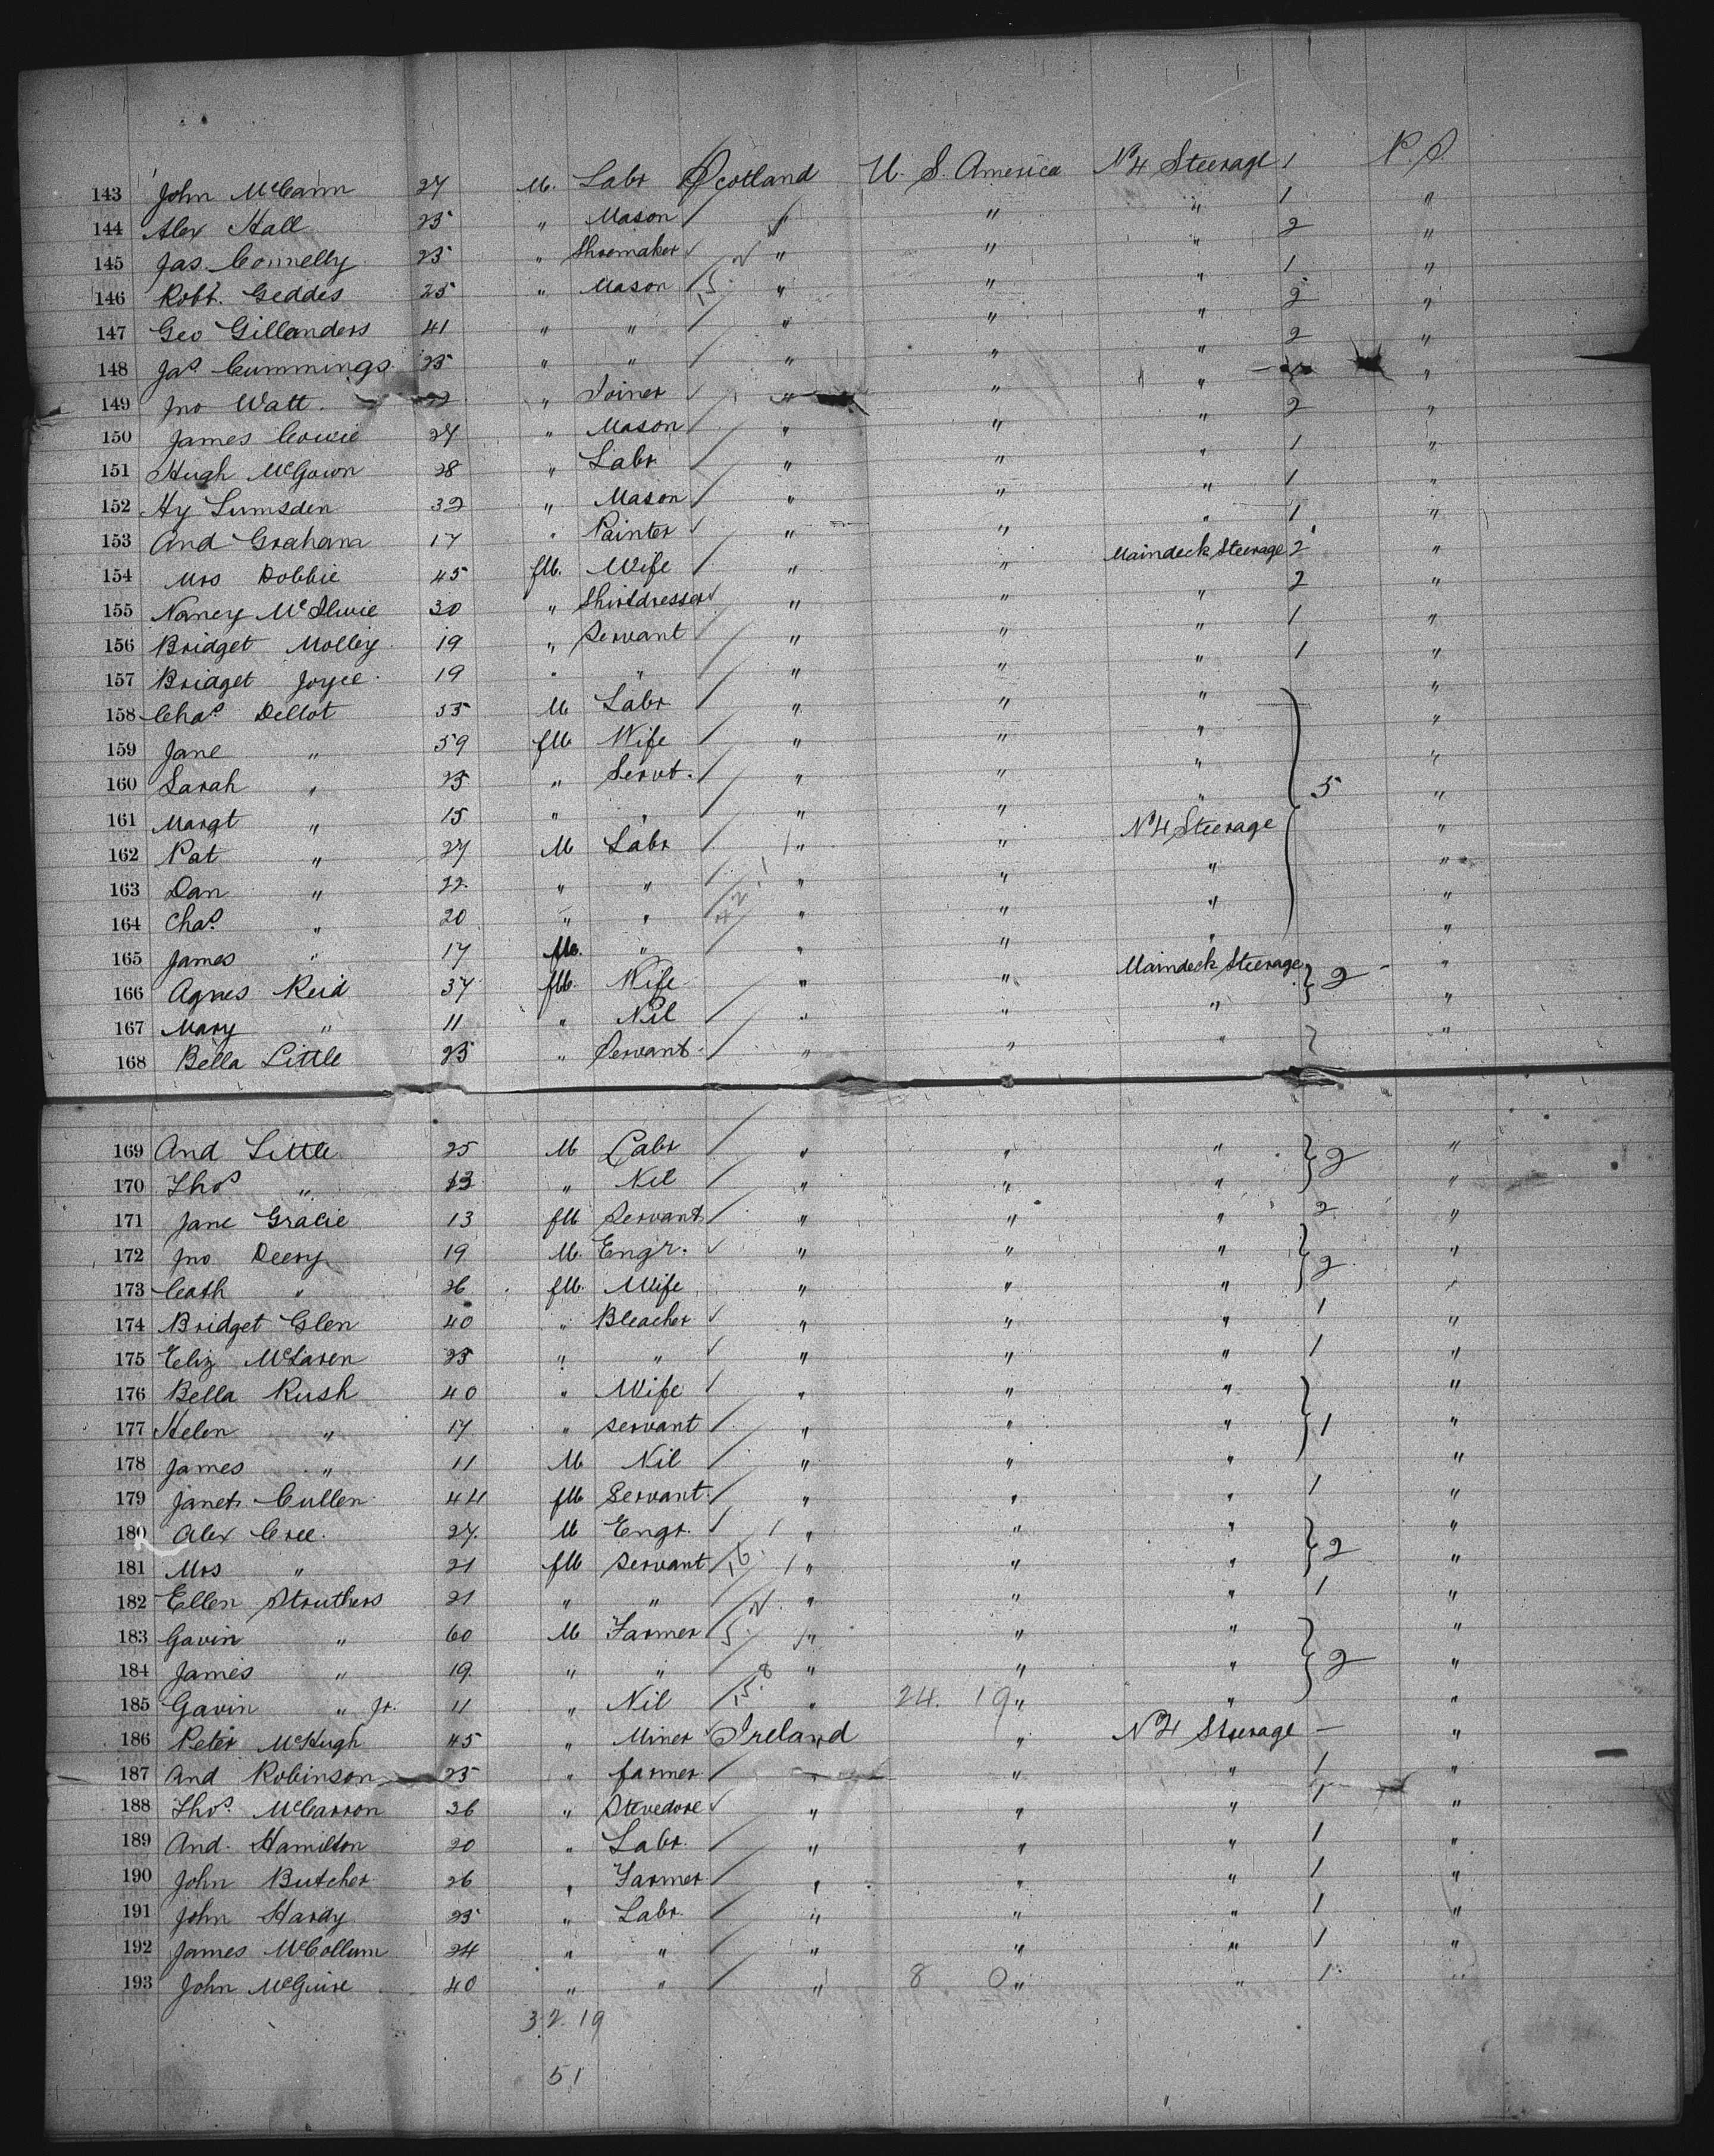 143 John McCann 27 M. Labr Scotland U. S. America No 4 Steerage 1 P.S.
144 Alex Hall 25 " Mason " " " 1 "
145 Jas. Connelly 25 " Shoemaker " " " 2 "
146 Robt. Geddes 25 " Mason " " " 1 "
147 Geo Gillanders 41 " " " " " 2 "
148 Jas Cummings 25 " " " " " 2 "
149 Jno Watt. 22 " Joiner " " " "
150 James Cowie 27 " Mason " " " 2 "
151 Hugh McGown 28 " Labr " " " 1 "
152 Hy Lumsden 32 " Mason " " " 1 "
153 And Graham 17 " Painter " " " 1 "
154 Mrs Dobbie 45 fM. Wife " " Maindeck Steerage 2 "
155 Nancy McIlwie 30 " Shirtdresser " " " 2 "
156 Bridget Molley 19 " Servant " " " 1 "
157 Bridget Joyce 19 " " " " " 1 "
158 Chas. Dellot 55 M Labr " " " "
159 Jane " 59 fM Wife " " " "
160 Sarah " 25 " Servt. " " " 5 "
161 Margt " 15 " " " " " "
162 Pat " 27 M Labr " " No 4 Steerage "
163 Dan " 22 " " " " " "
164 Chas. " 20 " " " " " "
165 James " 17 M. " " " " "
166 Agnes Reid 37 fM. Wife " " Maindeck Steerage 2 "
167 Mary " 11 " Nil " " " "
168 Bella Little 25 " Servant " " " "
169 And Little 25 M Labr " " " 2 "
170 Thos " 13 " Nil " " " "
171 Jane Gracie 13 fM Servant " " " 2 "
172 Jno Deery 19 M. Engr. " " " 2 "
173 Cath " 26 fM. Wife " " " "
174 Bridget Glen 40 " Bleacher " " " 1 "
175 Eliz McLaren 25 " " " " " 1 "
176 Bella Rush 40 " Wife " " " "
177 Helen " 17 " servant " " " 1 "
178 James " 11 M Nil " " " "
179 Janet Cullen 44 fM Servant " " " 1 "
180 Alex Cree. 27. M Engr. " " " 2 "
181 Mrs " 21 fM Servant " " " "
182 Ellen Struthers 21 " " " " " 1 "
183 Gavin " 60 M Farmer " " " "
184 James " 19. " " " " " 2 "
185 Gavin " Jr. 11 " Nil " 24. 19 " " "
186 Peter McHugh 45 " Miner Ireland " No 4 Steerage — "
187 And Robinson 25 " farmer " " " 1 "
188 Thos. McCarron 26 " Stevedore " " " 1 "
189 And. Hamilton 20 " Labr. " " " 1 "
190 John Butcher 26 " Farmer " " " 1 "
191 John Hardy 25 " Labr. " " " 1 "
192 James McCollum 24 " " " " " 1 "
193 John McGuire 40 " " " 8 0 " " 1 "
32. 19
51